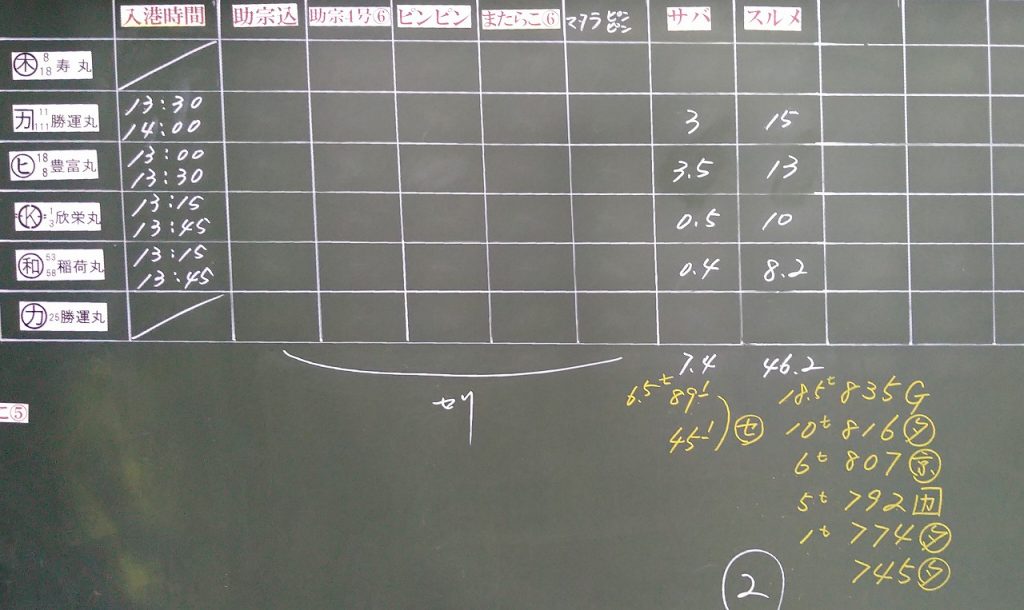 入港時間 助宗込 助宗4号⑥ ピンピン またらこ⑥ マタラピンピン サバ スルメ
㊍ 8 18 寿丸
カ 11 111 勝運丸 13:30 14:00 3 15
ヒ 18 8 豊富丸 13:00 13:30 3.5 13
K 1 3 欣栄丸 13:15 13:45 0.5 10
和 53 58 稲荷丸 13:15 13:45 0.4 8.2
カ 25 勝運丸
7.4 46.2
セリ
こ⑤
6.5t 89
45 セ
18.5t 835 G
10t 816 タ
6t 807 京
5t 792 カ
1t 774 タ
745 タ
②